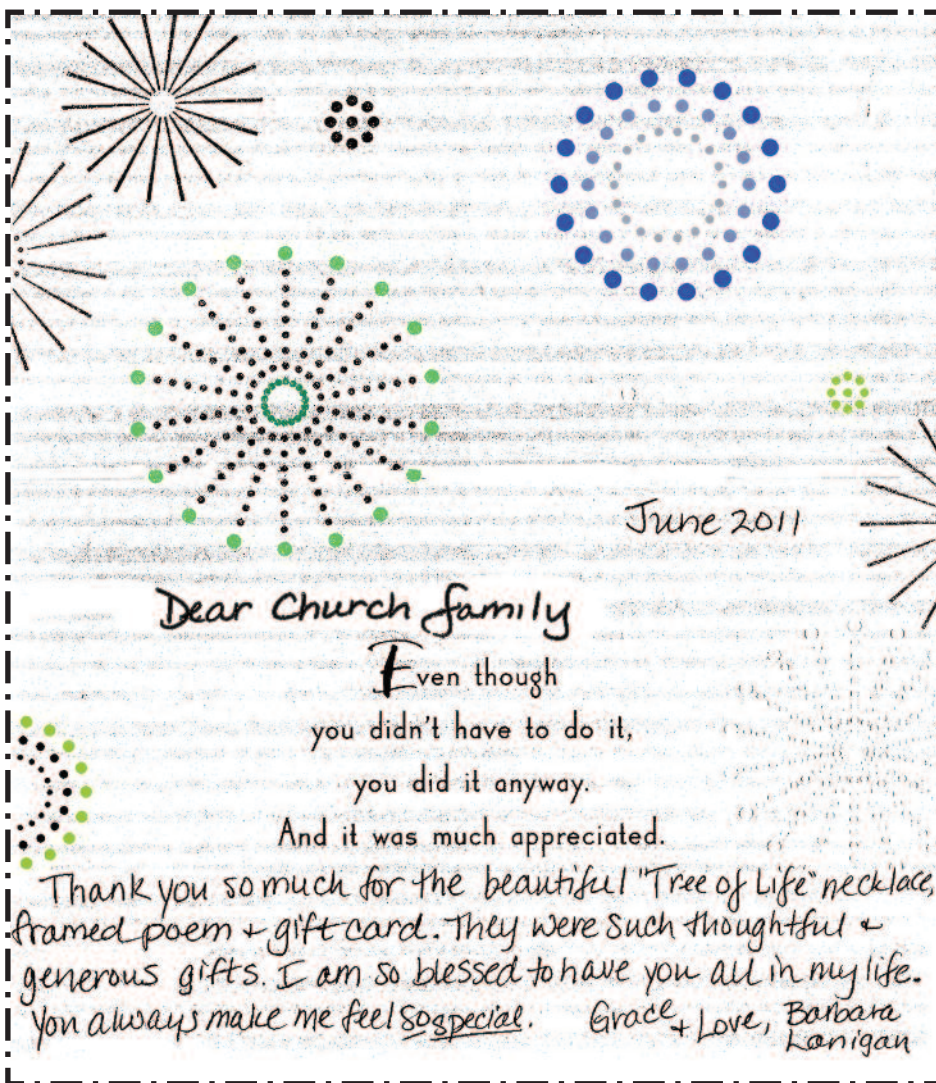 June 2011
Dear Church family
Even though
you didn't have to do it,
you did it anyway.
And it was much appreciated.
Thank you so much for the beautiful "Tree of Life" necklace,
framed poem + gift card. They were such thoughtful +
generous gifts. I am so blessed to have you all in my life.
You always make me feel so special. Grace + Love, Barbara
Lanigan